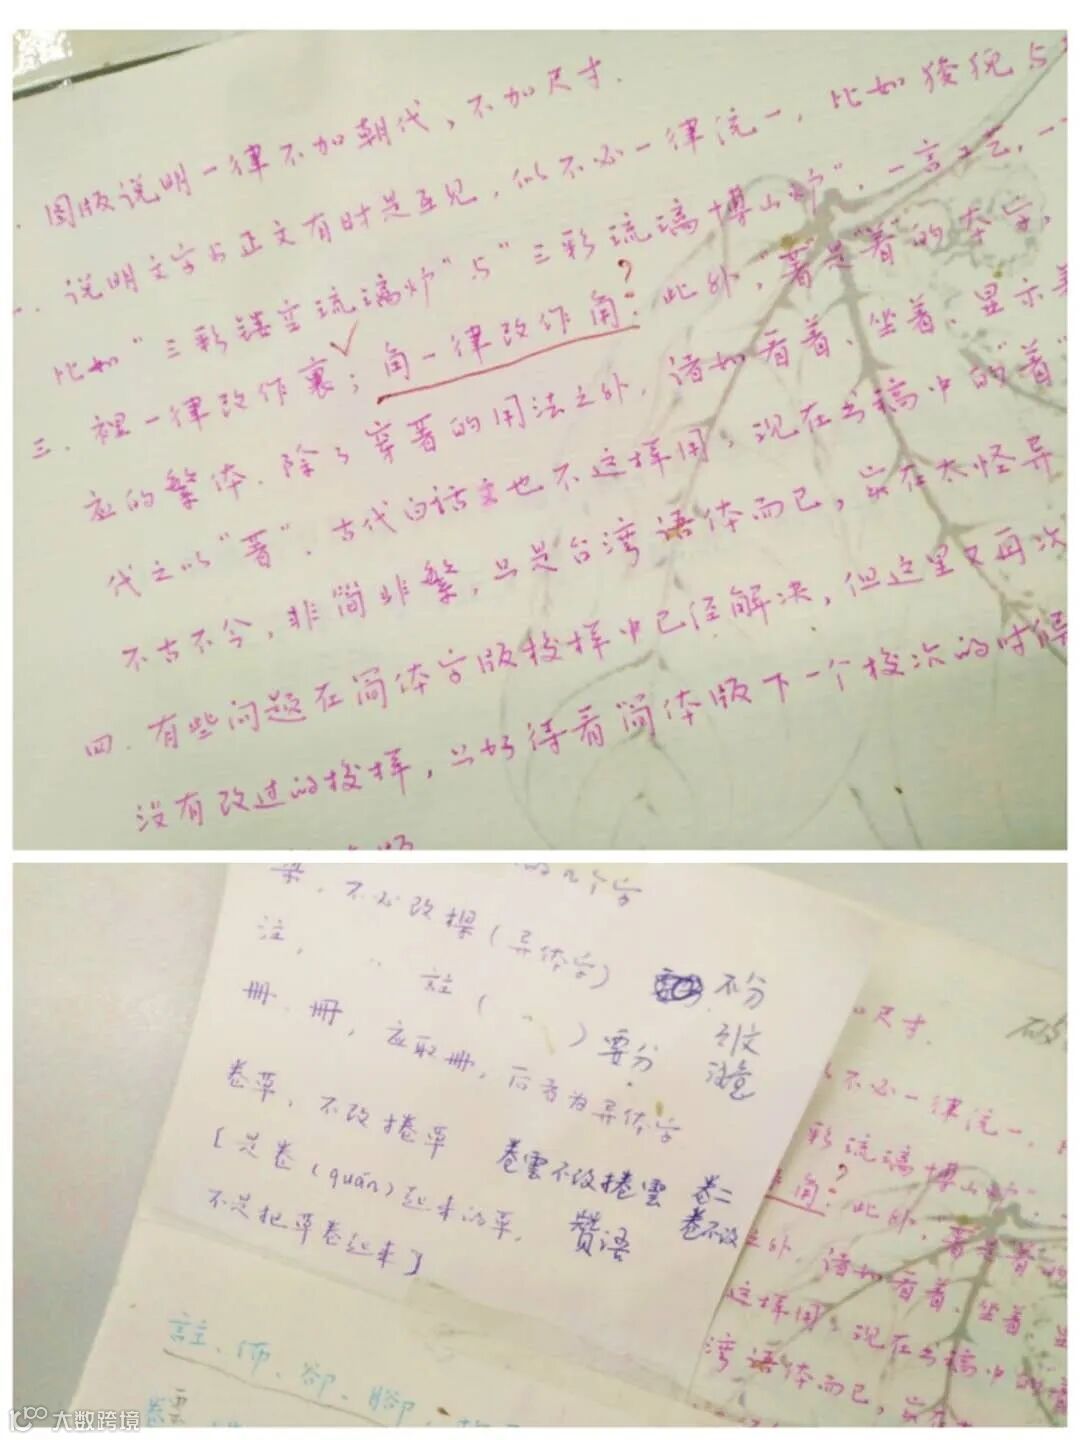 图版说明一律不加朝代、不加尺寸.
一. 说明文字与正文有时是互见, 似不必一律统一, 比如狻猊与
比如"三彩镂空琉璃炉"与"三彩琉璃博山炉", 一言工艺, 一
三. 裡一律改作裏; 角一律改作角? 此外, "著"是"着"的本字,
应的繁体. 除了穿著的用法之外, 诸如看着、坐着、显示着
代之以"著". 古代白话文也不这样用, 现在书稿中的"着"
不古不今, 非简非繁, 只是台湾语体而已, 实在太怪异
四. 有些问题在简体字版校样中已经解决, 但这里又再次
没有改过的校样, 只好待看简体版下一个校次的时候
的几个字
不必改 (异体字) 不分
注, 註( 〃 ) 要分 引文
冊. 册, 应取冊, 后者为异体字 注意
卷草, 不改捲草 卷雲不改捲雲 卷二
[是卷(quán)起来的草, 赞语 卷不改
不是把草卷起来]
尺寸.
不必一律统一,
彩琉璃博山炉"
角? 此外, 著是着的
之外, 诸如看着、坐着、
这样用, 现在书稿中的
湾语体而已, 实在
註、
大数跨境